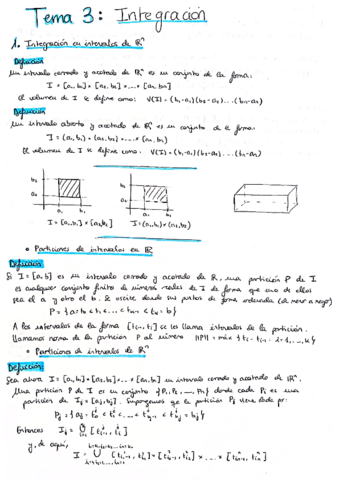 Tema 3: Integración
1. Integración en intervalos de ℝⁿ
Definición
Un intervalo cerrado y acotado de ℝⁿ es un conjunto de la forma:
I = [a₁, b₁] × [a₂, b₂] × ... × [aₙ, bₙ]
El volumen de I se define como: V(I) = (b₁-a₁)(b₂-a₂)...(bₙ-aₙ)
Definición
Un intervalo abierto y acotado de ℝⁿ es un conjunto de la forma:
I = (a₁, b₁) × (a₂, b₂) × ... × (aₙ, bₙ)
El volumen de I se define como: V(I) = (b₁-a₁)(b₂-a₂)...(bₙ-aₙ)
b₂
a₂
a₁ b₁
I = [a₁, b₁] × [a₂, b₂]
b₂
a₂
a₁ b₁
I = (a₁, b₁) × (a₂, b₂)
• Particiones de intervalos en ℝ
Definición:
Si I = [a, b] es un intervalo cerrado y acotado de ℝ, una partición P de I
es cualquier conjunto finito de números reales de I de forma que uno de ellos
sea el a y otro el b. Se escribe dando sus puntos de forma ordenada (de menor a mayor)
P = {a = t₀ < t₁ < ... < tₖ₋₁ < tₖ = b}
A los intervalos de la forma [tᵢ₋₁, tᵢ] se les llama intervalos de la partición.
Llamamos norma de la partición P al número ||P|| = máx {tᵢ - tᵢ₋₁ : i = 1, ..., k}
• Particiones de intervalos de ℝⁿ
Definición:
Sea ahora I = [a₁, b₁] × [a₂, b₂] × ... × [aₙ, bₙ] un intervalo cerrado y acotado de ℝⁿ.
Una partición P de I es un conjunto {P₁, P₂, ..., Pₙ} donde cada Pⱼ es una
partición de Iⱼ = [aⱼ, bⱼ]. Supongamos que la partición Pⱼ viene dada por:
Entonces
y, de aquí,